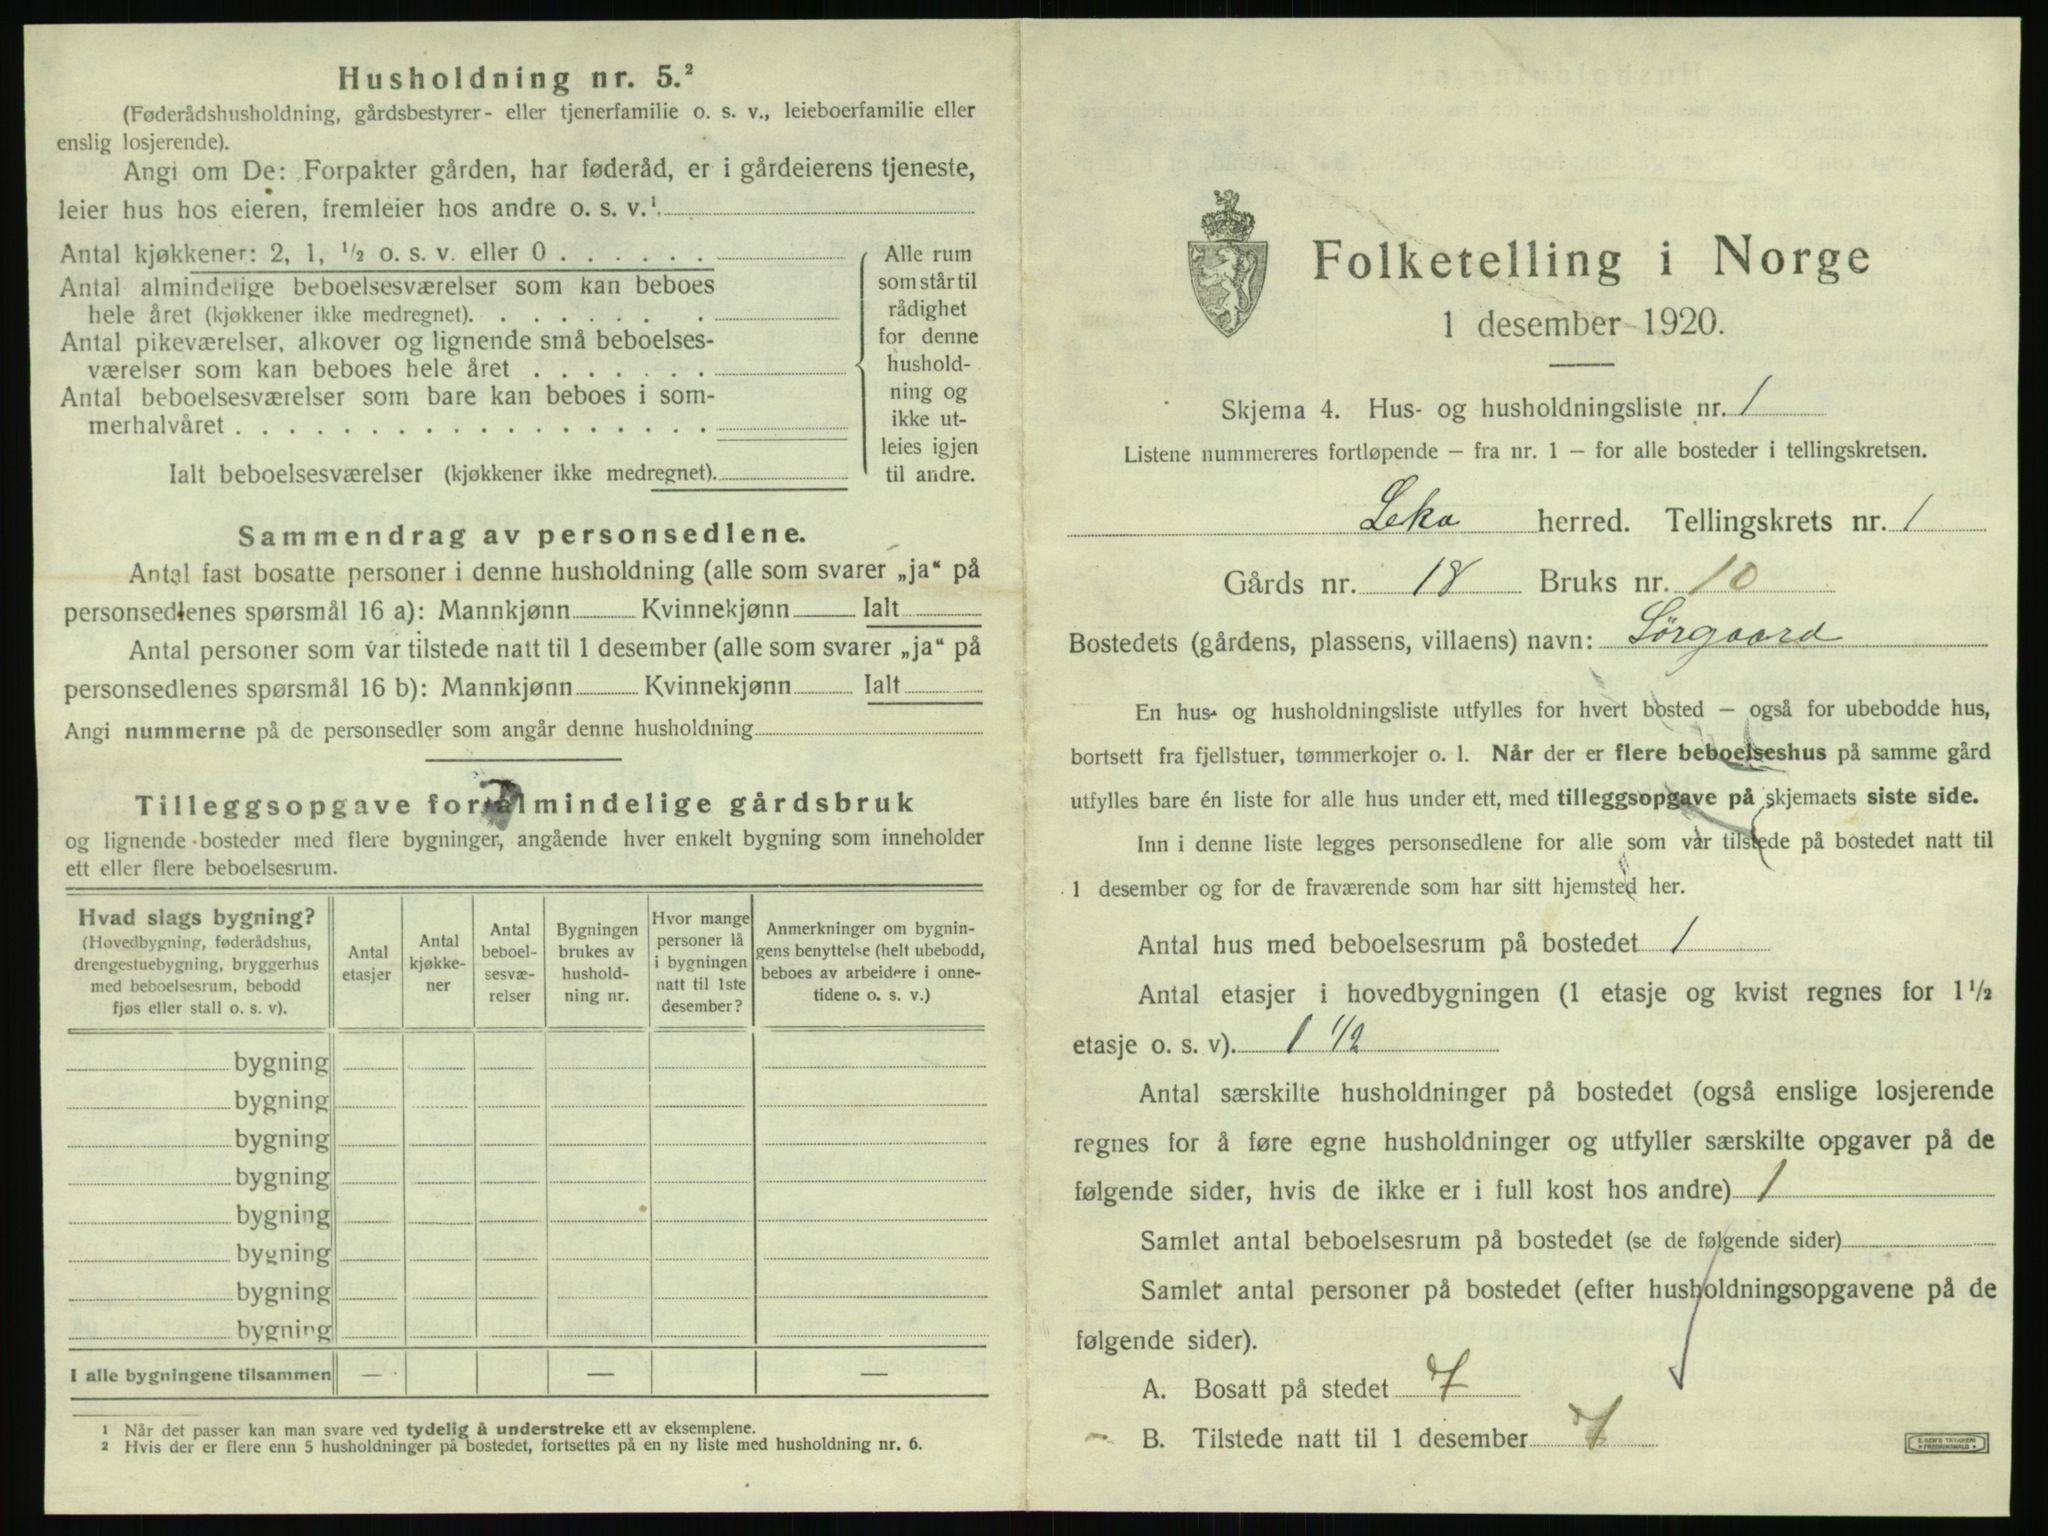 Husholdning nr. 5.²
(Føderådshusholdning, gårdsbestyrer- eller tjenerfamilie o. s. v., leieboerfamilie eller
enslig losjerende).
Angi om De: Forpakter gården, har føderåd, er i gårdeierens tjeneste,
leier hus hos eieren, fremleier hos andre o. s. v.¹.
Antal kjøkkener: 2, 1, ½ o. s. v. eller 0 . . . . . .
Antal almindelige beboelsesværelser som kan beboes
hele året (kjøkkener ikke medregnet). . . . . . . .
Antal pikeværelser, alkover og lignende små beboelses-
værelser som kan beboes hele året . . . . . . .
Antal beboelsesværelser som bare kan beboes i som-
merhalvåret . . . . . . . . . . . . . . . . . .
Ialt beboelsesværelser (kjøkkener ikke medregnet).
Alle rum
som står til
rådighet
for denne
hushold-
ning og
ikke ut-
leies igjen
til andre.
Sammendrag av personsedlene.
Antal fast bosatte personer i denne husholdning (alle som svarer „ja“ på
personsedlenes spørsmål 16 a): Mannkjønn Kvinnekjønn Ialt
Antal personer som var tilstede natt til 1 desember (alle som svarer „ja“ på
personsedlenes spørsmål 16 b): Mannkjønn Kvinnekjønn Ialt
Angi nummerne på de personsedler som angår denne husholdning
Tilleggsopgave for almindelige gårdsbruk
og lignende bosteder med flere bygninger, angående hver enkelt bygning som inneholder
ett eller flere beboelsesrum.
Hvad slags bygning?
(Hovedbygning, føderådshus,
drengestuebygning, bryggerhus
med beboelsesrum, bebodd
fjøs eller stall o. s. v).
Antal
etasjer
Antal
kjøkke-
ner
Antal
beboel-
sesvæ-
relser
Bygningen
brukes av
hushold-
ning nr.
Hvor mange
personer lå
i bygningen
natt til 1ste
desember?
Anmerkninger om bygnin-
gens benyttelse (helt ubebodd,
beboes av arbeidere i onne-
tidene o. s. v.)
bygning
bygning
bygning
bygning
bygning
bygning
bygning
bygning
I alle bygningene tilsammen — — —
¹ Når det passer kan man svare ved tydelig å understreke ett av eksemplene.
² Hvis der er flere enn 5 husholdninger på bostedet, fortsettes på en ny liste med husholdning nr. 6.
Folketelling i Norge
1 desember 1920.
Skjema 4. Hus- og husholdningsliste nr. 1
Listene nummereres fortløpende – fra nr. 1 – for alle bosteder i tellingskretsen.
Leka herred. Tellingskrets nr. 1
Gårds nr. 18 Bruks nr. 10
Bostedets (gårdens, plassens, villaens) navn: Sörgaard
En hus- og husholdningsliste utfylles for hvert bosted – også for ubebodde hus,
bortsett fra fjellstuer, tømmerkojer o. l. Når der er flere beboelseshus på samme gård
utfylles bare én liste for alle hus under ett, med tilleggsopgave på skjemaets siste side.
Inn i denne liste legges personsedlene for alle som var tilstede på bostedet natt til
1 desember og for de fraværende som har sitt hjemsted her.
Antal hus med beboelsesrum på bostedet 1
Antal etasjer i hovedbygningen (1 etasje og kvist regnes for 1½
etasje o. s. v). 1 ½
Antal særskilte husholdninger på bostedet (også enslige losjerende
regnes for å føre egne husholdninger og utfyller særskilte opgaver på de
følgende sider, hvis de ikke er i full kost hos andre) 1
Samlet antal beboelsesrum på bostedet (se de følgende sider)
Samlet antal personer på bostedet (efter husholdningsopgavene på de
følgende sider).
A. Bosatt på stedet 7
B. Tilstede natt til 1 desember 7